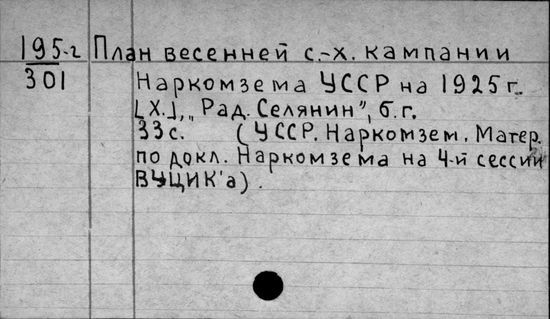 195-г План весенней с.-х. кампании
301 Наркомзема УССР на 1925 г.
[Х.], "Рад. Селянин", б.г.
33 с. (УССР. Наркомзем. Матер.
по докл. Наркомзема на 4-й сессии
ВУЦИК'а).